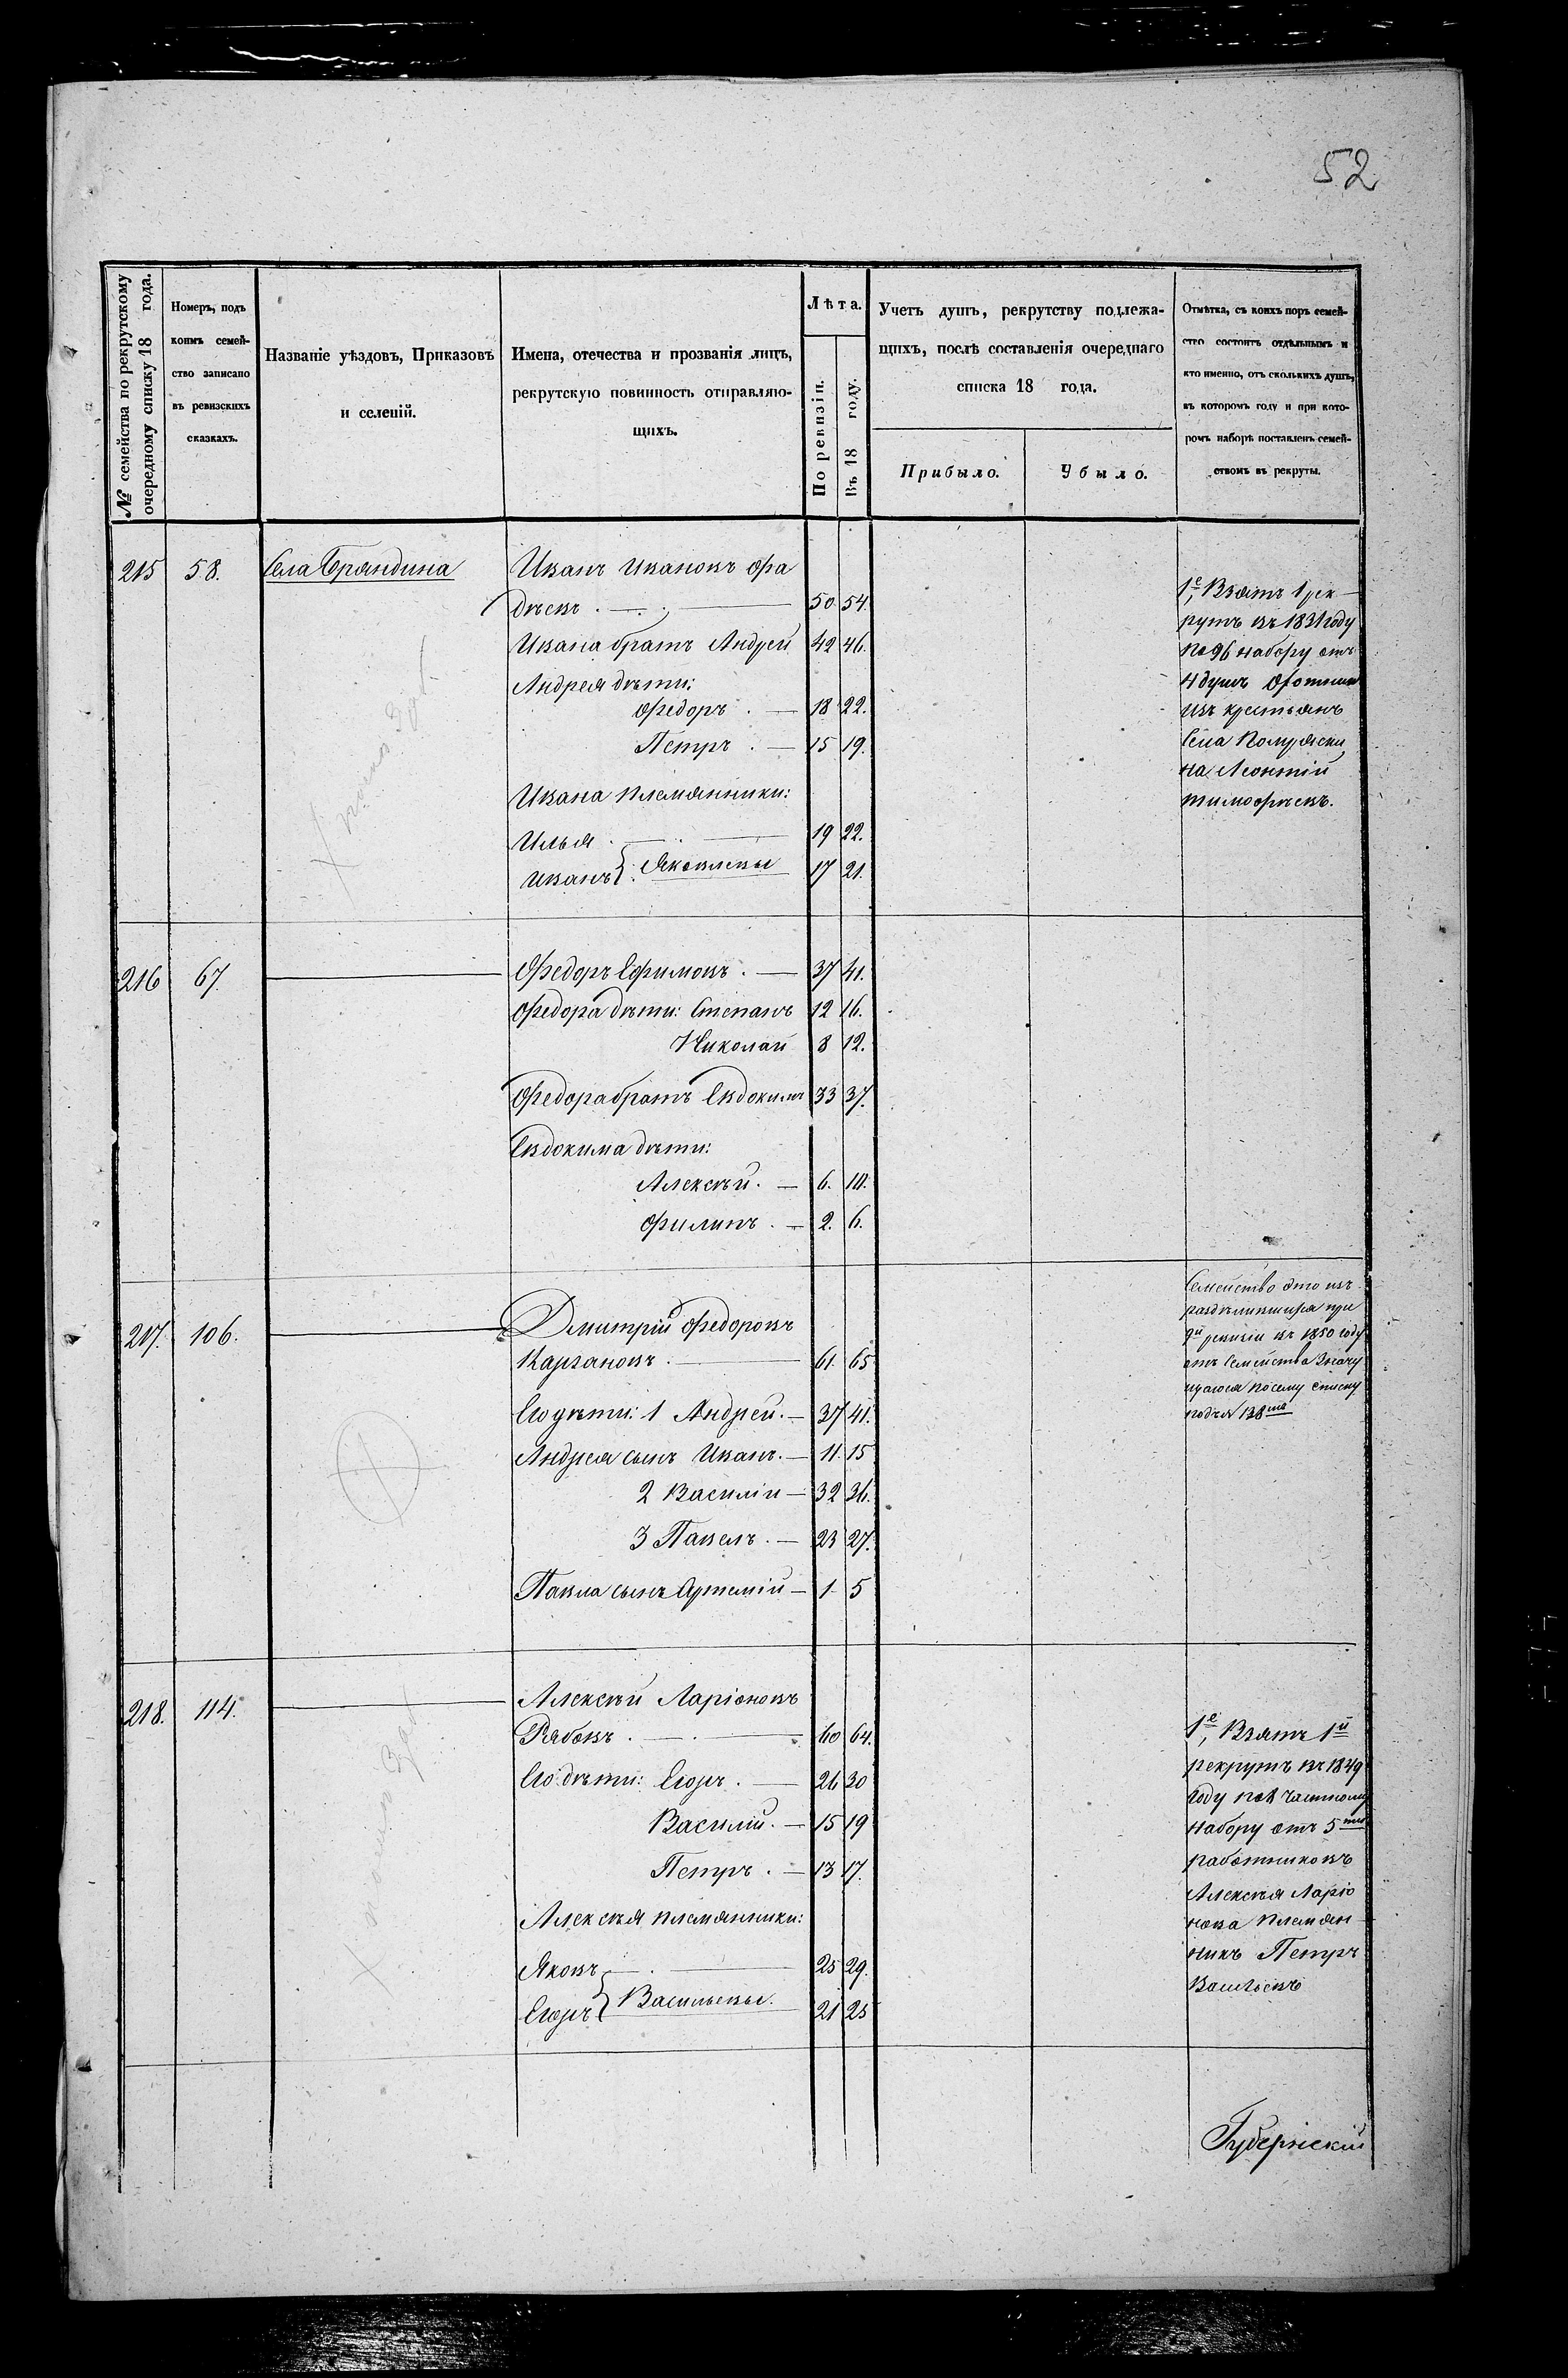 52
№ семейства по рекрутскому
очередному списку 18 года.
Номеръ, подъ
коимъ семей-
ство записано
въ ревизскихъ
сказкахъ.
Названіе уѣздовъ, Приказовъ
и селеній.
Имена, отечества и прозванія лицъ,
рекрутскую повинность отправляю-
щихъ.
Лѣта.
По ревизіи.
Въ 18 году.
Учетъ душъ, рекрутству подлежа-
щихъ, послѣ составленія очереднаго
списка 18 года.
Прибыло.
Убыло.
Отмѣтка, съ коихъ поръ семей-
ство состоитъ отдѣльнымъ и
кто именно, отъ сколькихъ душъ,
въ которомъ году и при кото-
ромъ наборѣ поставленъ семей-
ствомъ въ рекруты.
215 58. Села Бряндина Иванъ Ивановъ Фа
дѣевъ 50 54.
Ивана братъ Андрей 42 46.
Андрея дѣти:
Федоръ 18 22.
Петръ 15 19.
Ивана племянники:
Илья 19 22.
Иванъ } Яковлевы 17 21.
1е, Взятъ 1 рек
рутъ въ 1831 году
по 96 набору отъ
4 душъ
изъ крестьянъ
Села
на Леонтій
Тимофѣевъ.
216 67. Федоръ Ефимовъ 37 41.
Федора дѣти: Степанъ 12 16.
Николай 8 12.
Федора братъ Евдокимъ 33 37.
Евдокима дѣти:
Алексѣй 6. 10.
Филипъ 2. 6.
217. 106. Дмитрій Федоровъ
Каргановъ 61. 65
Его дѣти: 1 Андрей 37 41.
Андрея сынъ Иванъ 11. 15
2 Василій 32 36.
3 Павелъ 23 27.
Павла сынъ Артемій 1 5
Семейство это изъ
раздѣлившихся при
9й ревизіи въ 1850 году
отъ семейства значу
щагося по сему списку
подъ № 138мъ
218. 114. Алексѣй Ларіоновъ
Рябовъ 60 64.
Его дѣти: Егоръ 26 30
Василій 15 19
Петръ 13 17.
Алексѣя племянники:
Яковъ 25 29.
Егоръ } Васильевы. 21 25
1е, Взятъ 1й
рекрутъ въ 1849
году по 8 частному
набору отъ 5ти
работниковъ
Алексѣя Ларіо
нова племян
никъ Петръ
Васильевъ
Губернскій